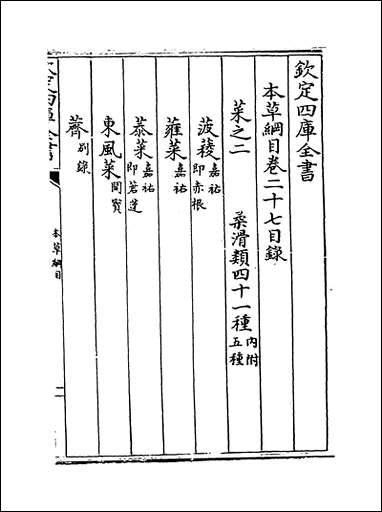 欽定四庫全書
本草綱目卷二十七目錄
菜之二　柔滑類四十一種 内附五種
菠薐 嘉祐 即赤根
蕹菜 嘉祐
菾菜 嘉祐 即莙薘
東風菜 開寶
薺 别錄
本草綱目